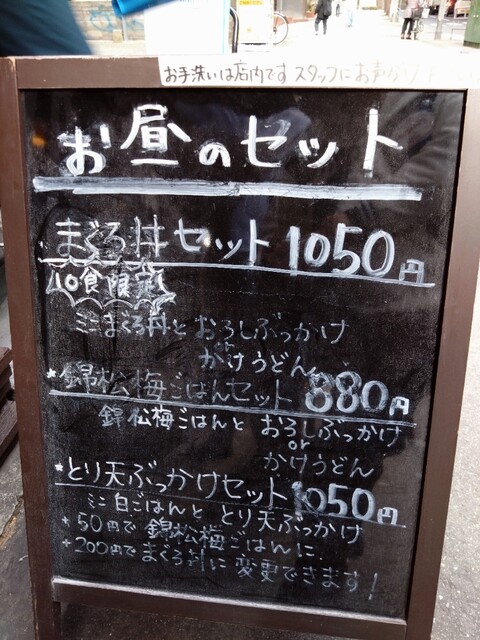 お手洗いは店内です スタッフにお声がけ
お昼のセット
まぐろ丼セット 1050円
10食限定!
ミニまぐろ丼と おろしぶっかけ
or
かけうどん
*錦松梅ごはんセット 880円
錦松梅ごはんと おろしぶっかけ
or
かけうどん
*とり天ぶっかけセット 1050円
ミニ白ごはんと とり天ぶっかけ
+50円で 錦松梅ごはんに
+200円で まぐろ丼に 変更できます!